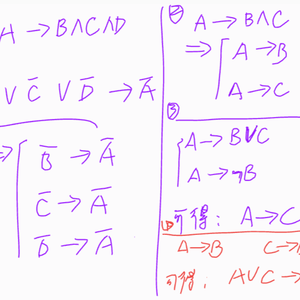 A → B∧C∧D
∨ C̅ ∨ D̅ → A̅
⇒ B̅ → A̅
C̅ → A̅
D̅ → A̅
② A → B∧C
⇒ A → B
A → C
③
A → B∨C
A → ¬B
可得: A → C
① A → B C →
可得: A∨C →